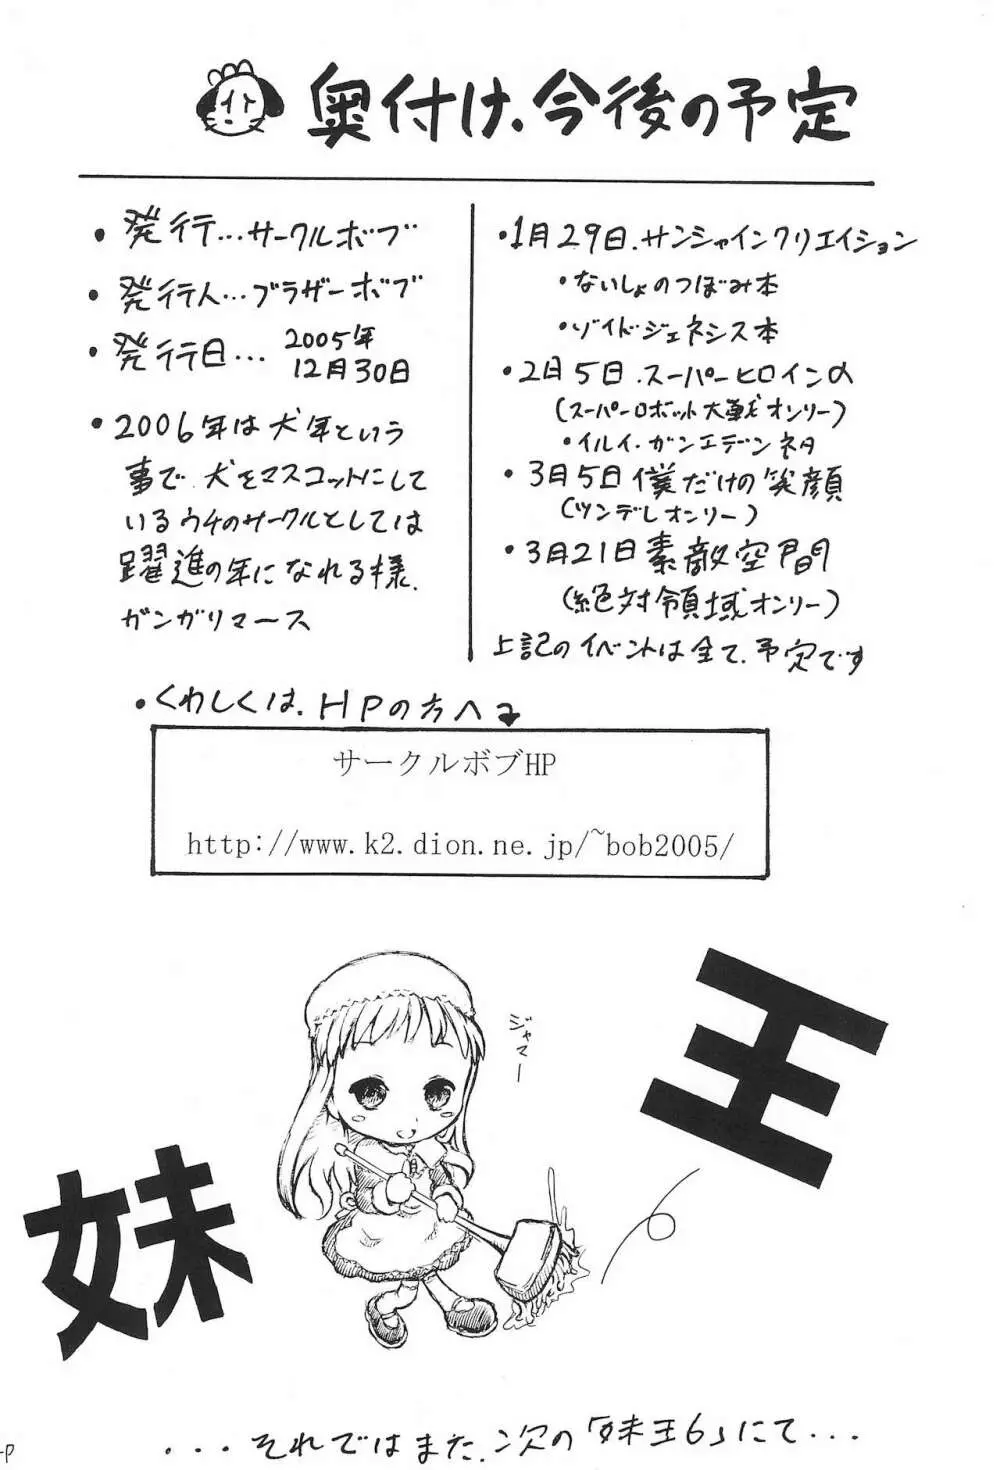 奥付け、今後の予定
・発行…サークルボブ
・発行人…ブラザーボブ
・発行日… 2005年
12月30日
・2006年は犬年という
事で犬をマスコットにして
いるウチのサークルとしては
躍進の年になれる様、
ガンガリマース
・1月29日、サンシャインクリエイション
・ないしょのつぼみ本
・ゾイドジェネシス本
・2月5日、スーパーヒロインの
(スーパーロボット大戦オンリー)
・イルイ・ガンエデンネタ
・3月5日僕だけの笑顔
(ツンデレオンリー)
・3月21日素敵空間
(絶対領域オンリー)
上記のイベントは全て、予定です
・くわしくは、HPの方へ
サークルボブHP
http://www.k2.dion.ne.jp/~bob2005/
ジャマー
妹王
・・・それではまた、次の「妹王6」にて・・・